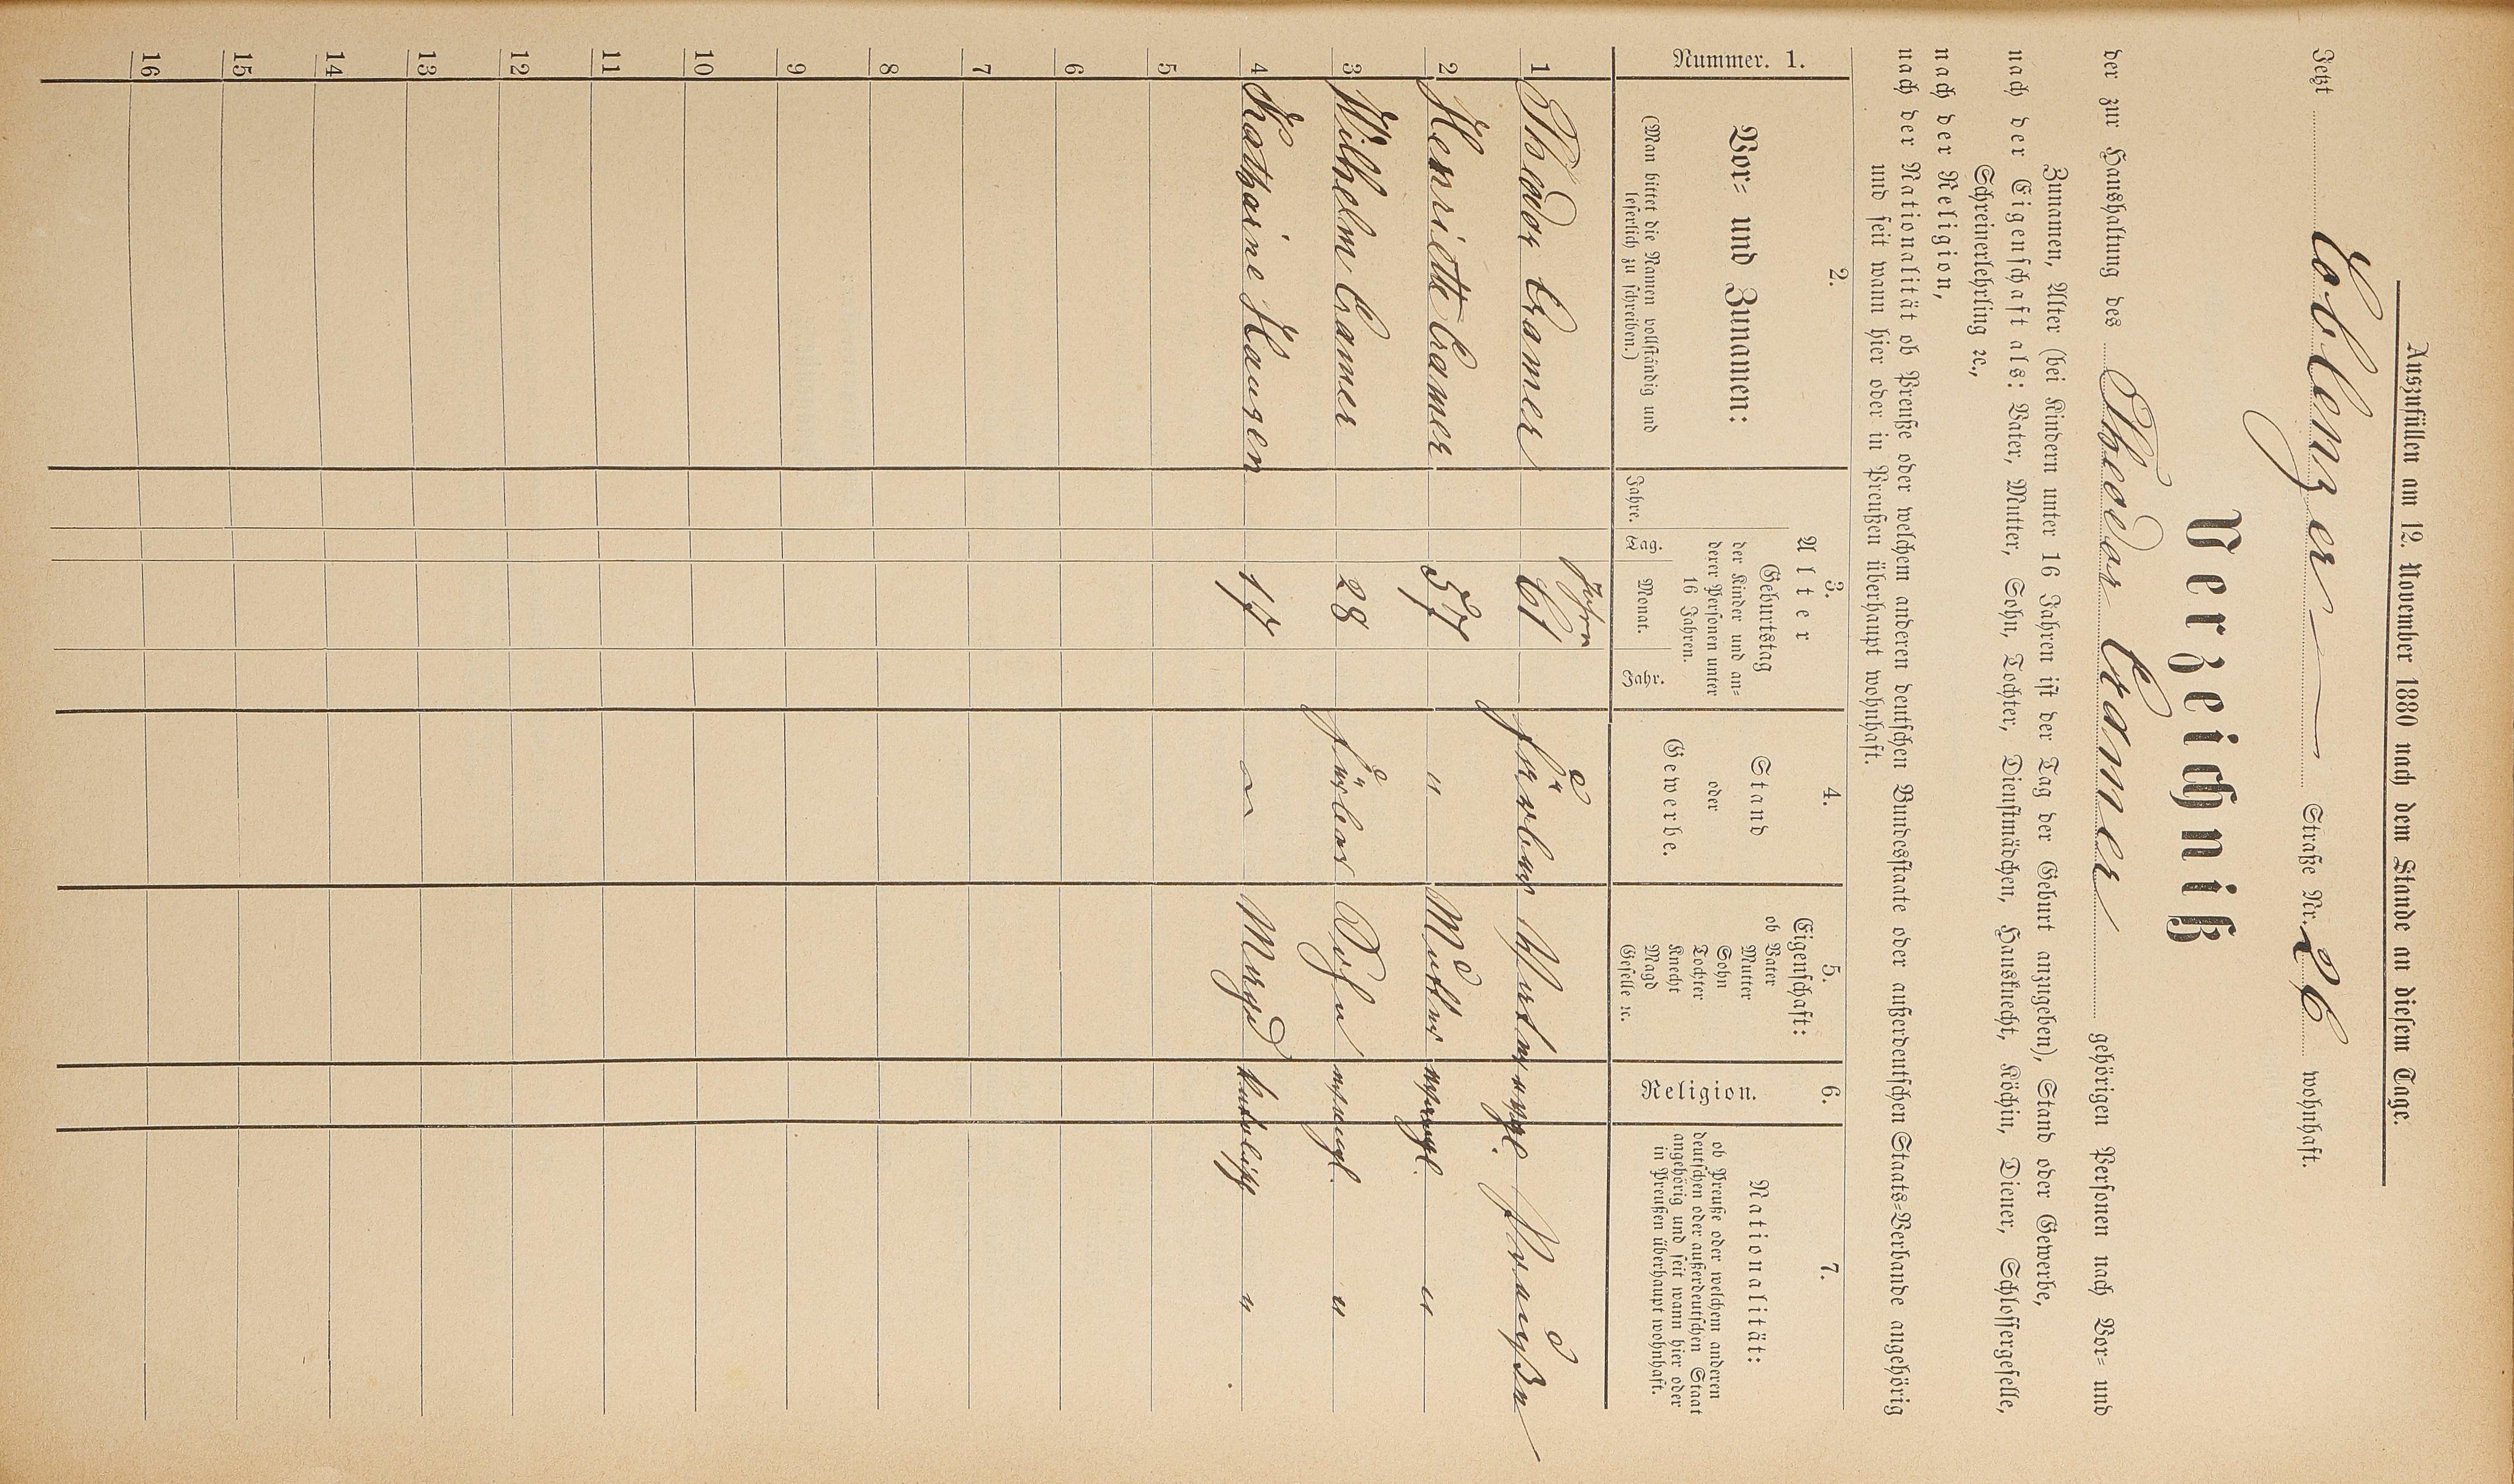 Auszufüllen am 12. November 1880 nach dem Stande an diesem Tage.
Jetzt Coblenzer Straße Nr. 26 wohnhaft.
Verzeichniß
der zur Haushaltung des Theodor Cramer gehörigen Personen nach Vor- und
Zunamen, Alter (bei Kindern unter 16 Jahren ist der Tag der Geburt anzugeben), Stand oder Gewerbe,
nach der Eigenschaft als: Vater, Mutter, Sohn, Tochter, Dienstmädchen, Hausknecht, Köchin, Diener, Schlossergeselle,
Schreinerlehrling ꝛc.,
nach der Religion,
nach der Nationalität ob Preuße oder welchem anderen deutschen Bundesstaate oder außerdeutschen Staats-Verbande angehörig
und seit wann hier oder in Preußen überhaupt wohnhaft.
Nummer. 1.
2.
Vor- und Zunamen:
(Man bittet die Namen vollständig und
leserlich zu schreiben.)
3.
Alter
Jahre.
Geburtstag
der Kinder und an-
derer Personen unter
16 Jahren.
Tag. Monat. Jahr.
4.
Stand
oder
Gewerbe.
5.
Eigenschaft:
ob Vater
Mutter
Sohn
Tochter
Knecht
Magd
Geselle ꝛc.
6.
Religion.
7.
Nationalität:
ob Preuße oder welchem anderen
deutschen oder außerdeutschen Staat
angehörig und seit wann hier oder
in Preußen überhaupt wohnhaft.
Jahre
1 Theodor Cramer 61 Färber Vater evgl. Preuße
2 Henriette Cramer 57 " Mutter evangl. "
3 Wilhelm Cramer 28 Färber Sohn evangl. "
4 Katharine Hausen 17 Magd katholisch "
5
6
7
8
9
10
11
12
13
14
15
16